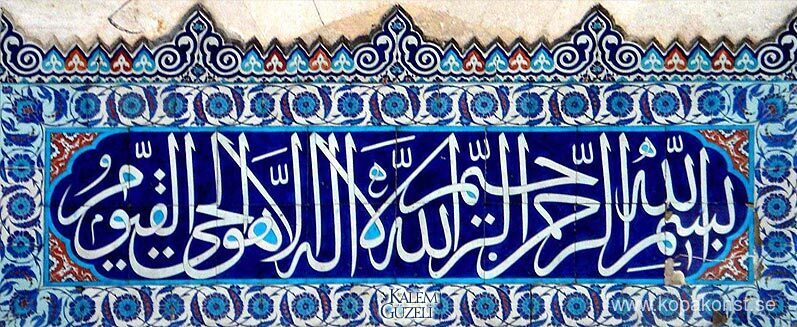 بسم الله الرحمن الرحيم الله لا اله الا هو الحي القيوم
KALEM
GÜZELİ
www.kopakonst.se